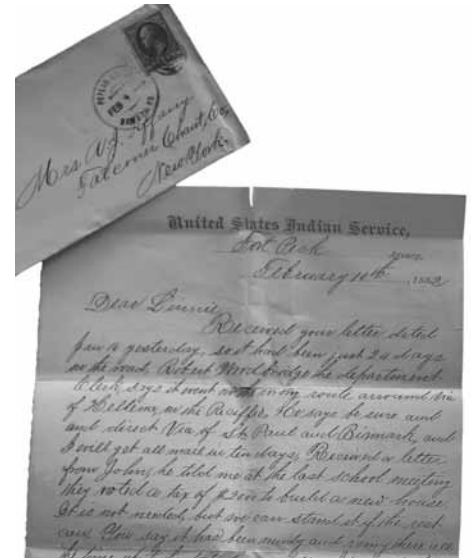 FEB
Mrs
Falconer Chaut, Co,
New York.
United States Indian Service,
Fort Peck Agency
February 10th, 1882
Dear Linnie
Received your letter dated
Jan yesterday, so it had been just 20 days
on the road, Robert Woodbridge the department
Clerk says it went wrong route arround via
of Hellena, on the Pacific, He says be sure and
and direct Via of St, Paul and Bismark, and
I will get all mail in ten days, Received a letter
from John, he told me at the last school meeting
they voted a tax of to build a new house
It is not needed, but we can stand it if the rest
can You say it had been muddy and rainy there